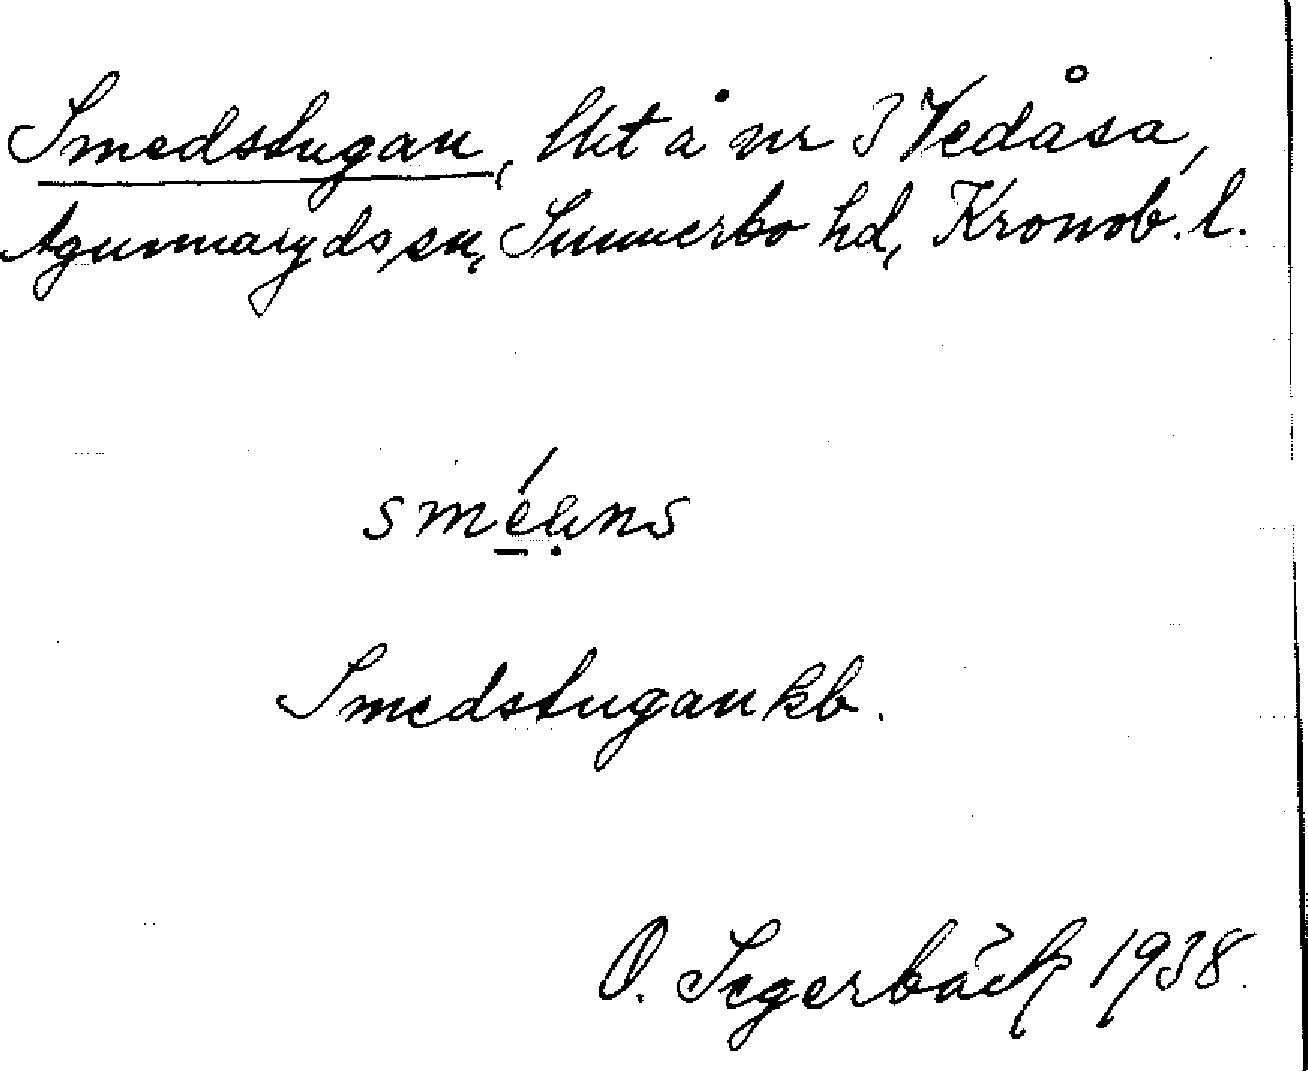 Smedstugan, lht å nr 3 Vedåsa,
Agunnaryds sn, Sunnerbo hd, Kronob. l.
Smedstugan kb.
O. Segerbäck 1938.